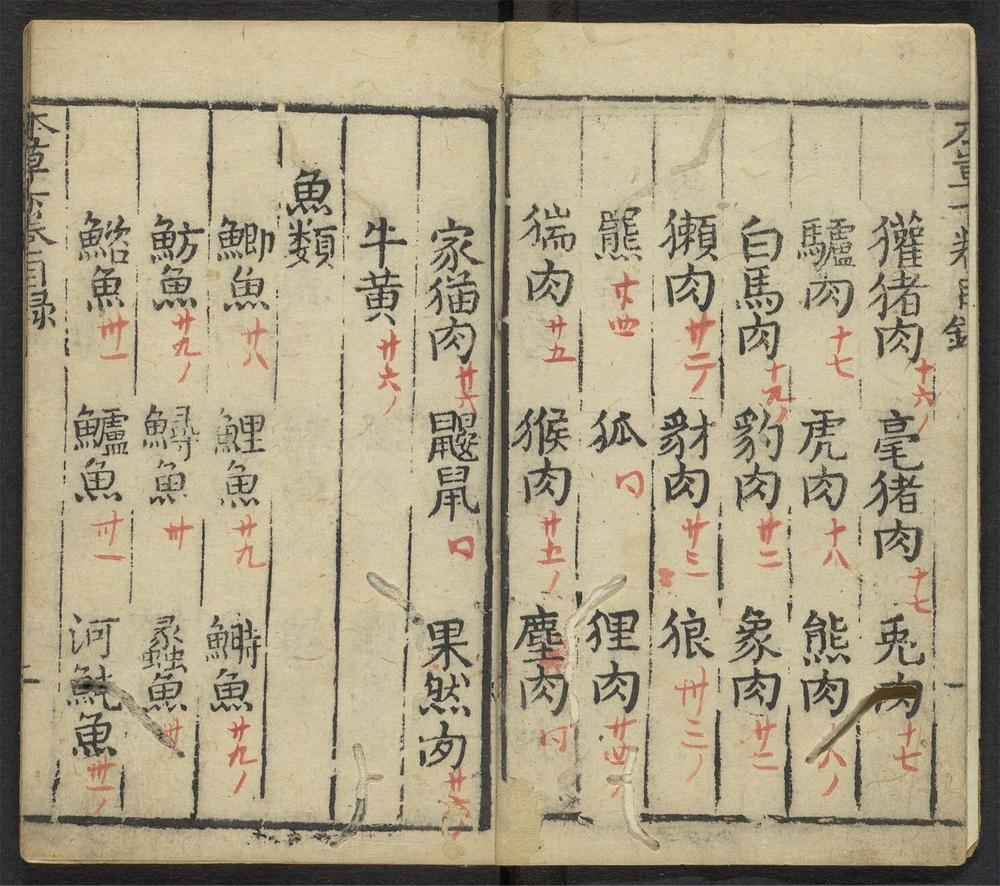 獾猪肉 十六ノ 毫猪肉 十七 兎肉 十七
驢肉 十七 虎肉 十八 熊肉 八ノ
白馬肉 十九ノ 豹肉 廿二 象肉 廿二
獺肉 廿二 豺肉 廿三 狼 廿三ノ
羆 廿四 狐 口 狸肉 廿四ノ
猯肉 廿五 猴肉 廿五ノ 麈肉 口
家猫肉 廿六 鼴鼠 口 果然肉 廿六ノ
牛黄 廿六ノ
魚類
鯽魚 廿八 鯉魚 廿九 鰣魚 廿九ノ
魴魚 廿九ノ 鱘魚 卅 魚 卅
鮎魚 卅一 鱸魚 卅一 河魨魚 卅一ノ
目録